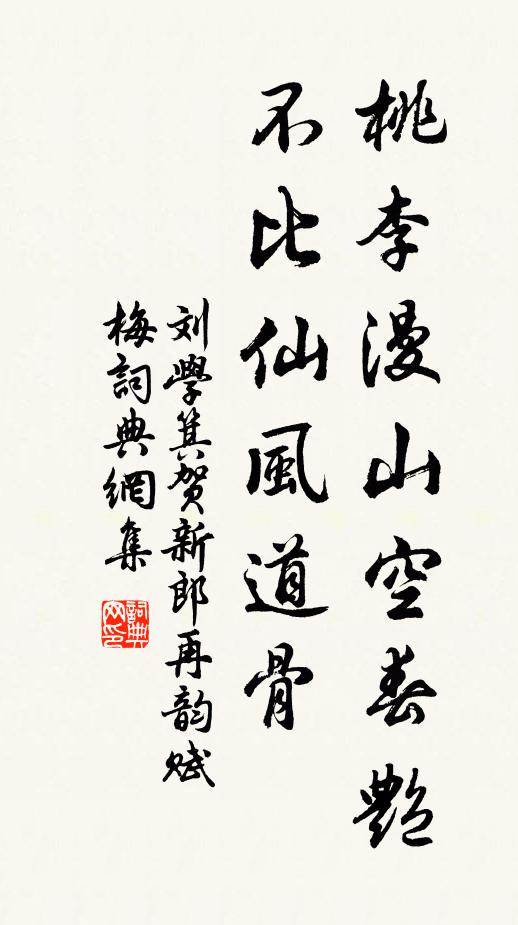 桃李漫山空春艷
不比仙風道骨
刘學箕贺新郎再韵赋
梅詞典網集
詞典网印